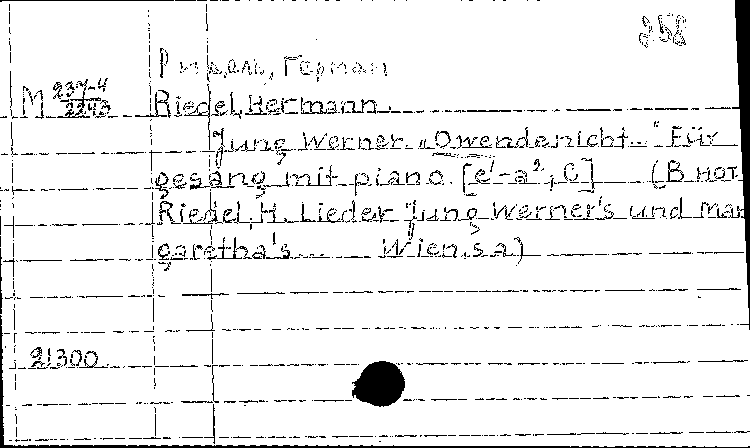 258
Ридель, Герман
М 237-4/2243 Riedel, Hermann.
Jung Werner. „O wende nicht..." Für
gesang mit piano. [e'-a², C] (В нот.
Riedel, H. Lieder Jung Werner's und Mar
garetha's... Wien, s a)
21300